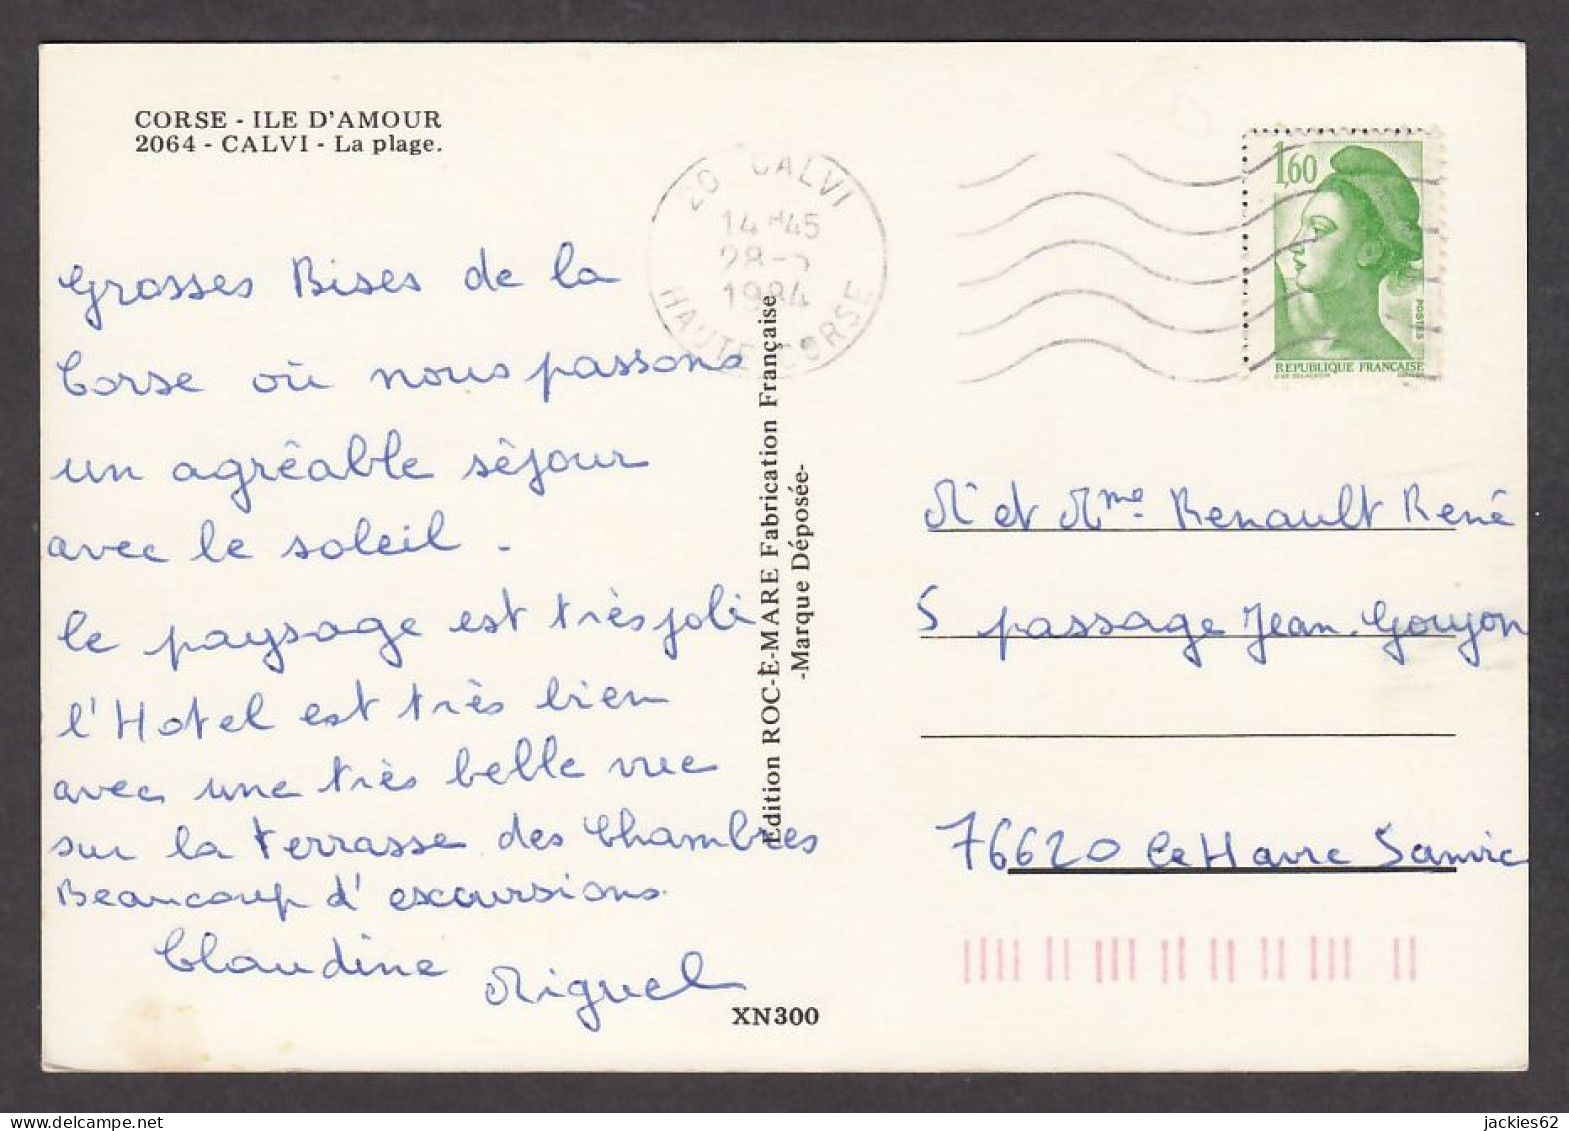 CORSE - ILE D'AMOUR
2064 - CALVI - La plage.
20 CALVI
14 H45
28-
1984
HAUTE CORSE
1,60
POSTES
REPUBLIQUE FRANÇAISE
Grosses Bises de la
Corse où nous passons
un agréable séjour
avec le soleil -
le paysage est très joli
l'Hotel est très bien
avec une très belle vue
sur la terrasse des Chambres
Beaucoup d'excursions.
Claudine Miguel
Edition ROC-È-MARE Fabrication Française
-Marque Déposée-
XN300
Mr et Mme Renault René
5 passage Jean. Goujon
76620 Le Havre Sanvic
jackies62